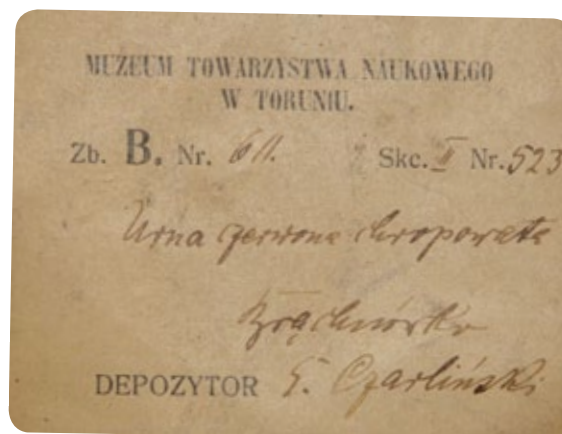 MUZEUM TOWARZYSTWA NAUKOWEGO
W TORUNIU.
Zb. B. Nr. 611. Skc. II Nr. 523
Urna czerwona chropowata
DEPOZYTOR Czarliński